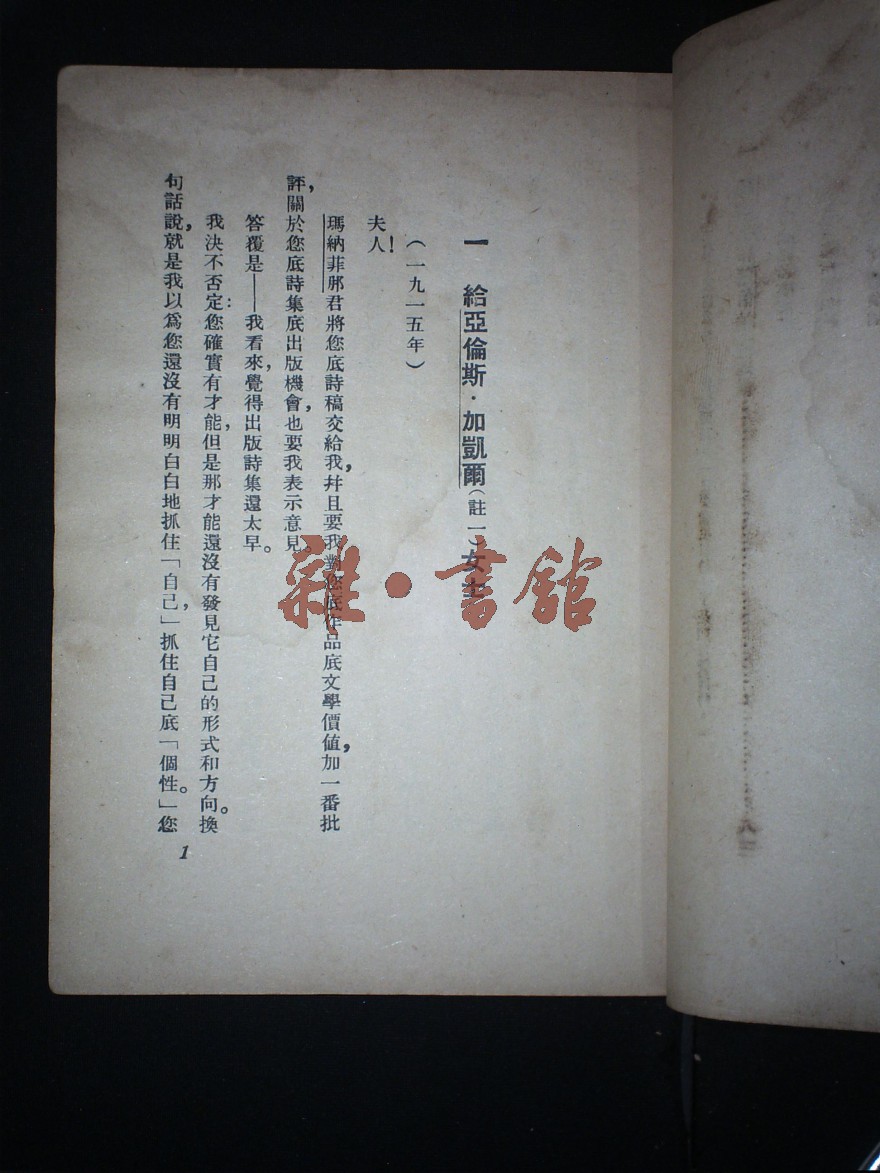 一　給亞倫斯·加凱爾（註一）女士
（一九一五年）
夫人！
瑪納菲那君將您底詩稿交給我，幷且要我對您底作品底文學價値，加一番批
評，關於您底詩集底出版機會，也要我表示意見。
答覆是——我看來，覺得出版詩集還太早。
我決不否定：您確實有才能，但是那才能還沒有發見它自己的形式和方向。換
句話說，就是我以爲您還沒有明明白白地抓住「自己，」抓住自己底「個性。」您
1
雜·書館